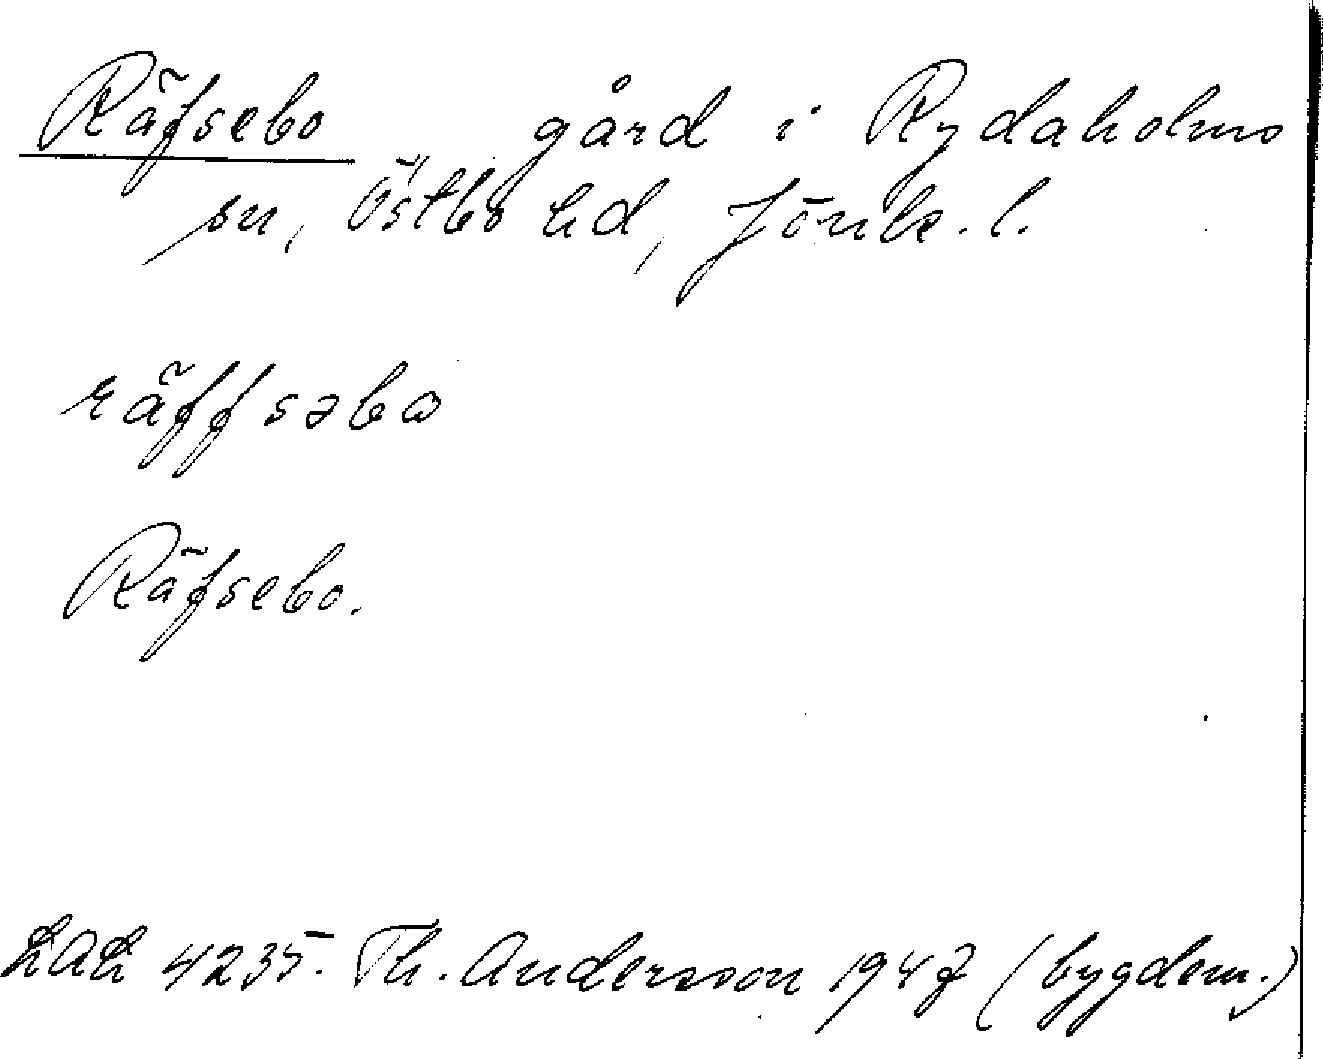 Räfsebo gård i Rydaholms
sn, Östbo hd, Jönk. l.
räffsəbω
Räfsebo.
LAL 4235. Th. Andersson 1947 (bygdem.)